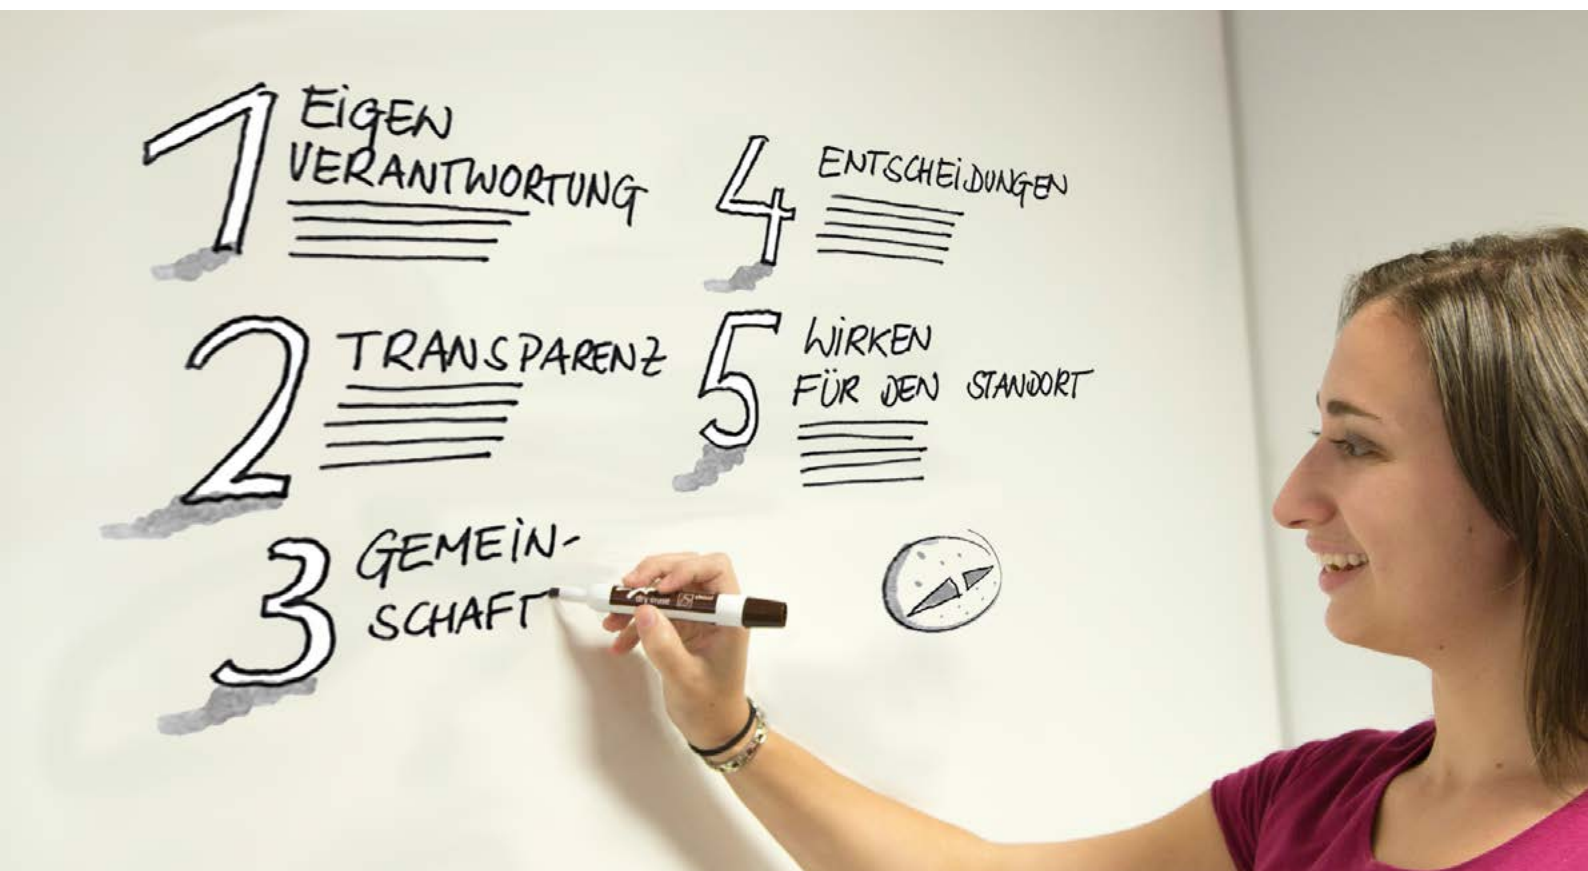 1 EiGEN
VERANTWORTUNG
2 TRANSPARENZ
3 GEMEiN-
SCHAFT
4 ENTSCHEiDUNGEN
5 WiRKEN
FÜR DEN STANDORT
dry erase